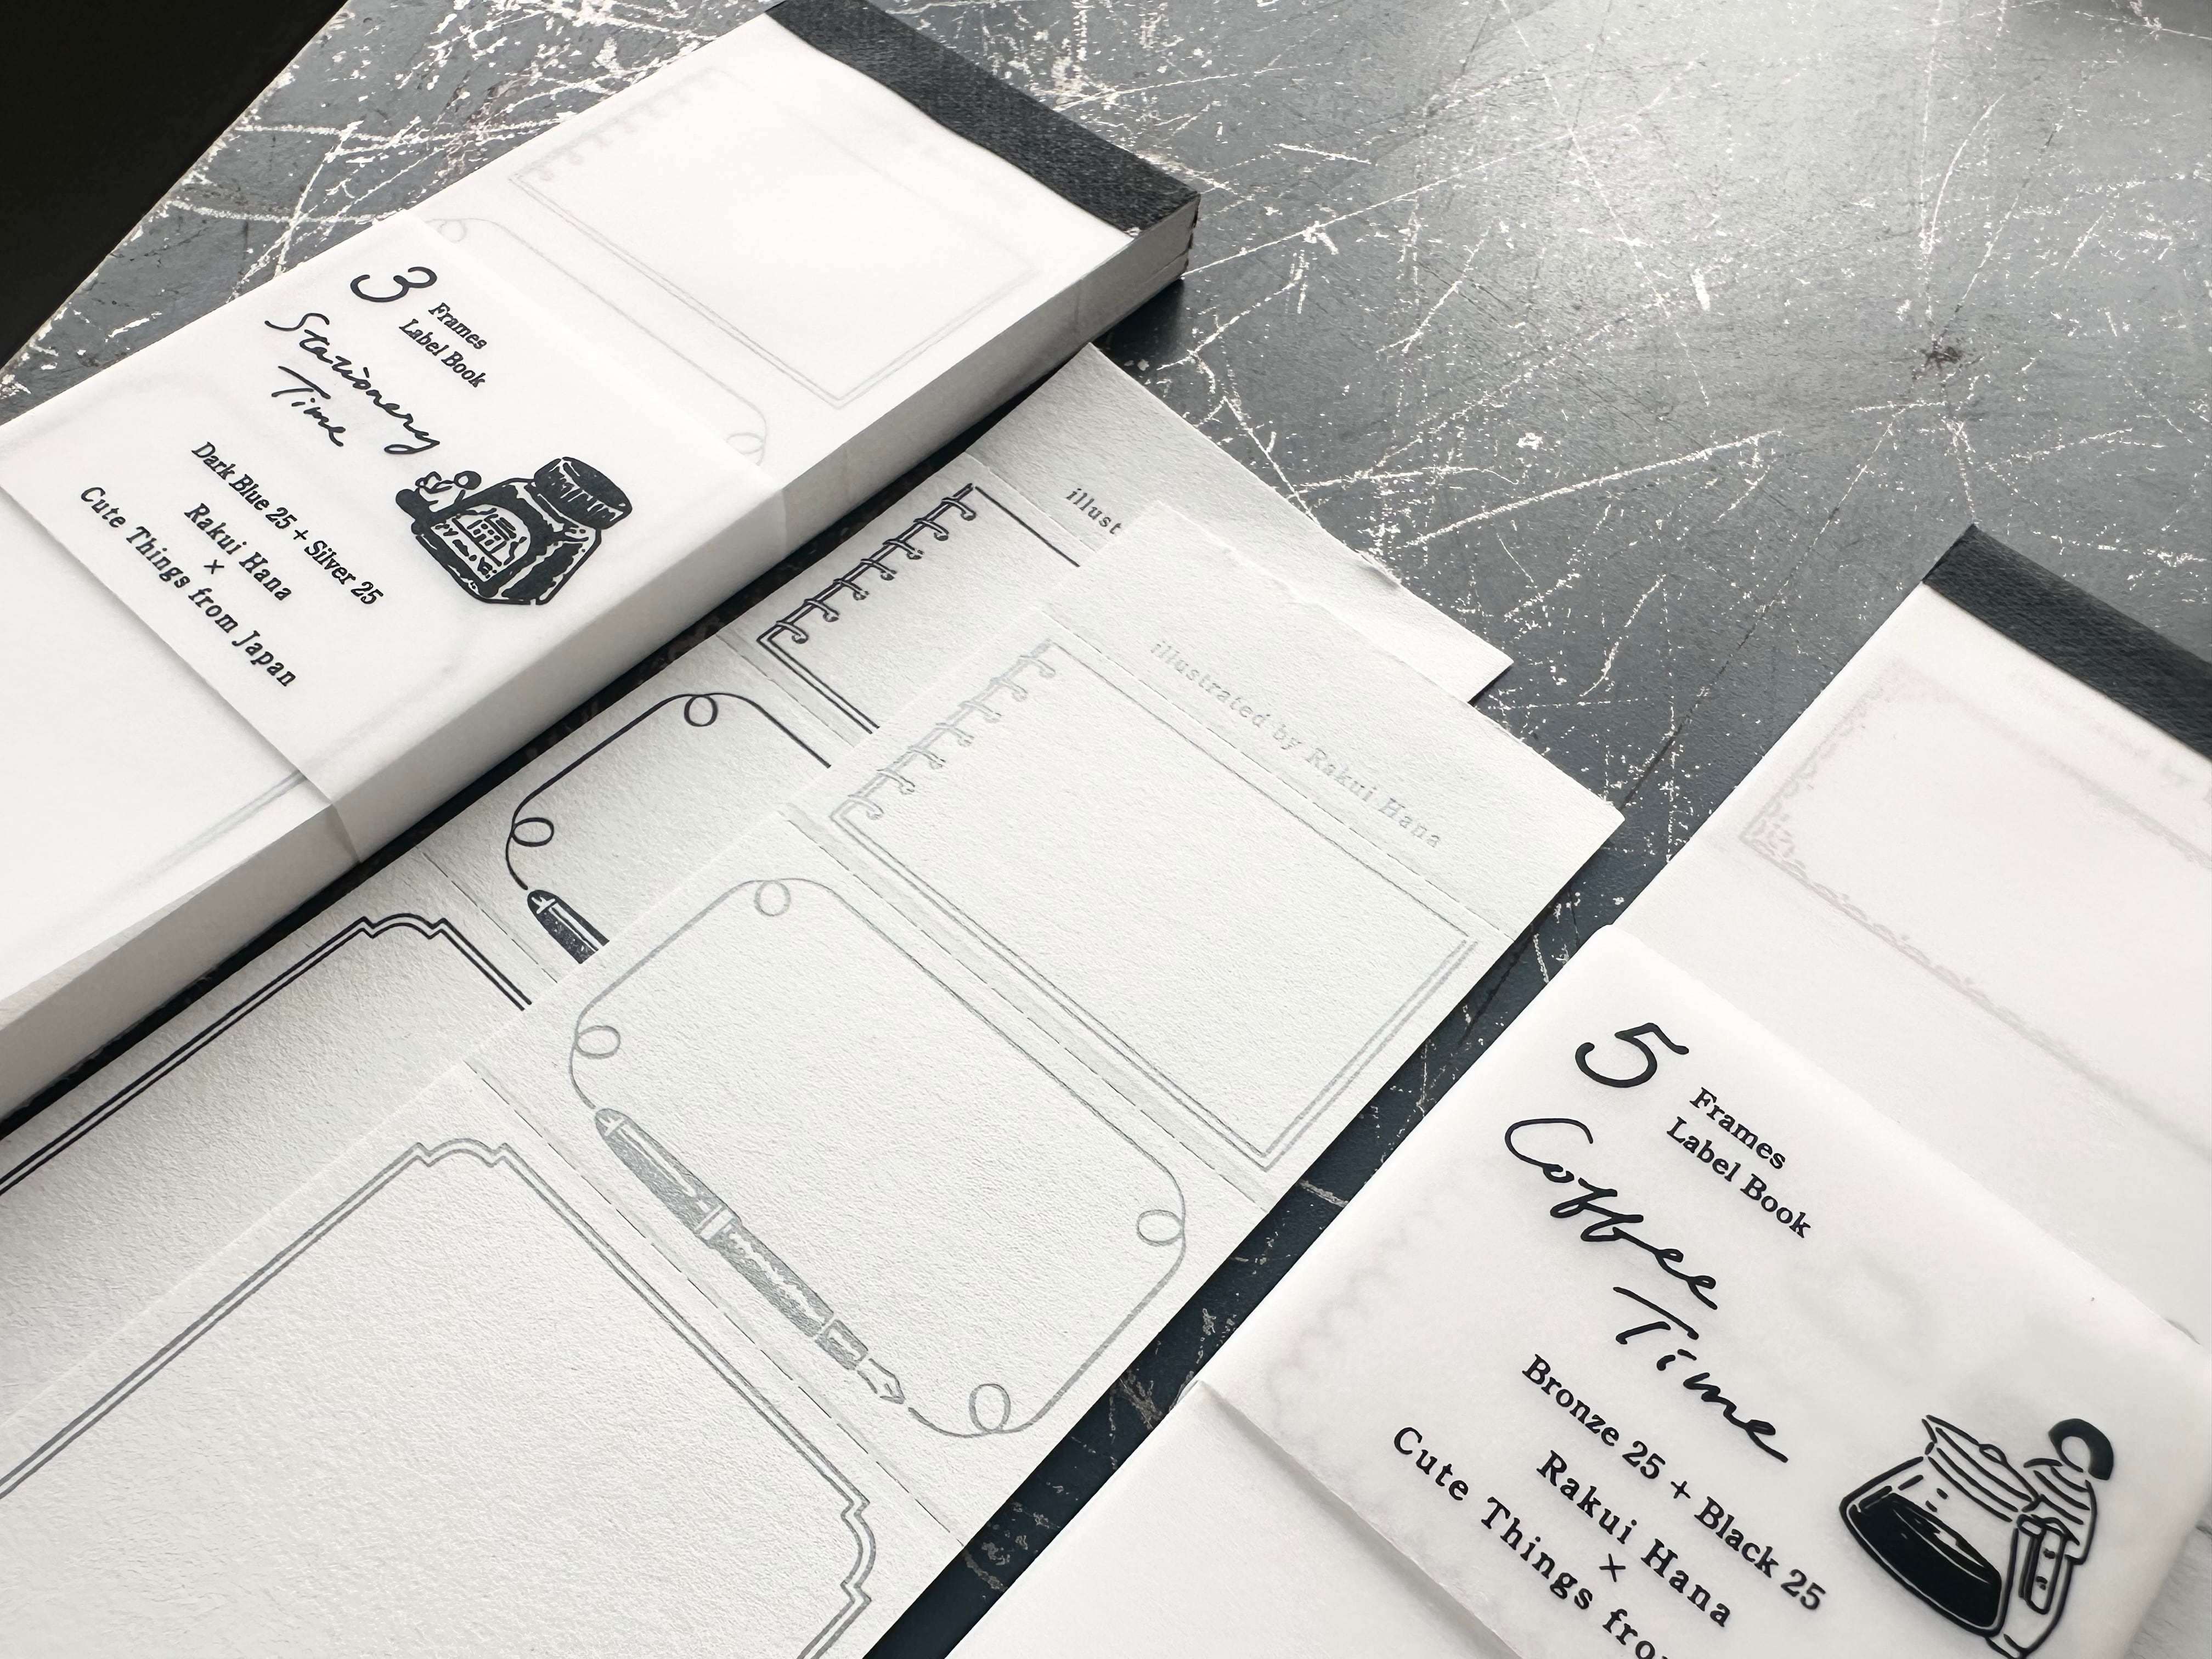 3 Frames
Label Book
Stationery
Time
Dark Blue 25 + Silver 25
Rakui Hana
×
Cute Things from Japan
illust
illustrated by Rakui Hana
5 Frames
Label Book
Coffee
Time
Bronze 25 + Black 25
Rakui Hana
×
Cute Things fro